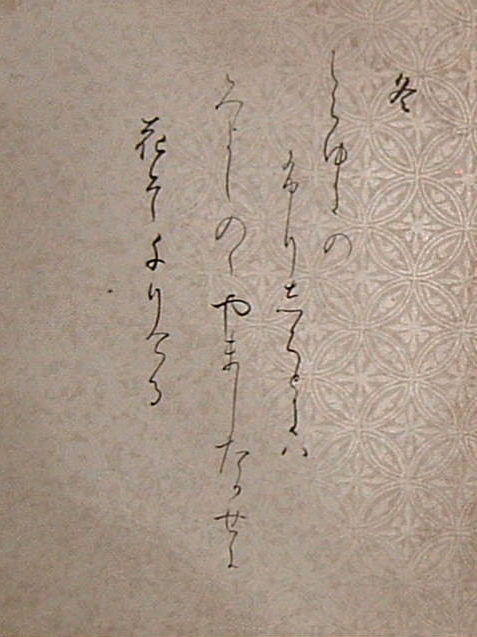 冬
しらゆきの
ふりしくときハ
みよしのゝやましたかせに
花そちりける